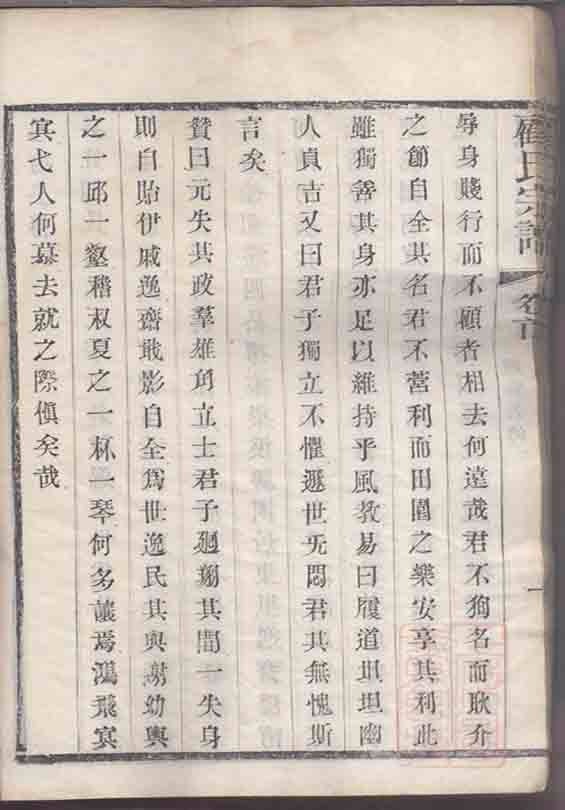 氏宗譜 卷首
一
辱身賤行而不顧者相去何遠哉君不狥名而耿介
之節自全其名君不營利而田園之樂安享其利此
雖獨善其身亦足以維持乎風教易曰履道坦坦幽
人貞吉又曰君子獨立不懼遯世旡悶君其無愧斯
言矣
贊曰元失其政羣雄角立士君子廻翔其間一失身
則自貽伊戚逸齋戢影自全為世逸民其與謝幼輿
之一邱一壑稽叔夏之一杯一琴何多讓焉鴻飛冥
冥弋人何慕去就之際愼矣哉